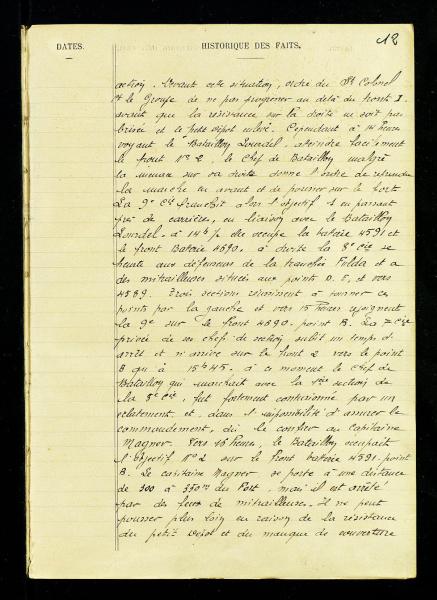 12
DATES. HISTORIQUE DES FAITS.
action. Devant cette situation, ordre du Lt Colonel
Ct le Groupe de ne pas progresser au delà du front I
avant que la résistance sur la droite ne soit pas
brisée et le petit dépôt enlevé. Cependant à 14 heures
voyant le Bataillon Lourdel, atteindre facilement
le front No 2, le Chef de Bataillon malgré
la menace sur sa droite donne l'ordre de reprendre
la marche en avant et de pousser sur le fort
La 9e Cie franchit alors l'objectif I en passant
près de carrière, en liaison avec le Bataillon
Lourdel. à 14h ½ elle occupe la batterie 4591 et
le front Batterie 4590. à droite la 5e Cie se
heurte aux défenseurs de la tranchée Fulda et a
des mitrailleuses situées aux points D. E, et vers
4589. Trois sections réussissent à tourner ces
points par la gauche et vers 15 heures rejoignent
la 9e sur le front 4590. point B. La 7e Cie
privée de ses chefs de section subit un temps d'
arrêt et n'arrive sur le front 2 vers le point
B qu'à 15h45. à ce moment le Chef de
Bataillon qui marchait avec la 1ère section de
la 5e Cie, fut fortement contusionné par un
éclatement et, dans l'impossibilité d'assurer le
commandement, dû le confier au Capitaine
Magner. Vers 16 heures, le Bataillon occupait
l'objectif No 2 sur le front batterie 4591-point
B. Le capitaine Magner se porte à une distance
de 300 à 350m du Fort, mais il est arrêté
par des feux de mitrailleuses. Il ne peut
pousser plus loin en raison de la résistance
du petit dépôt et du manque de couverture